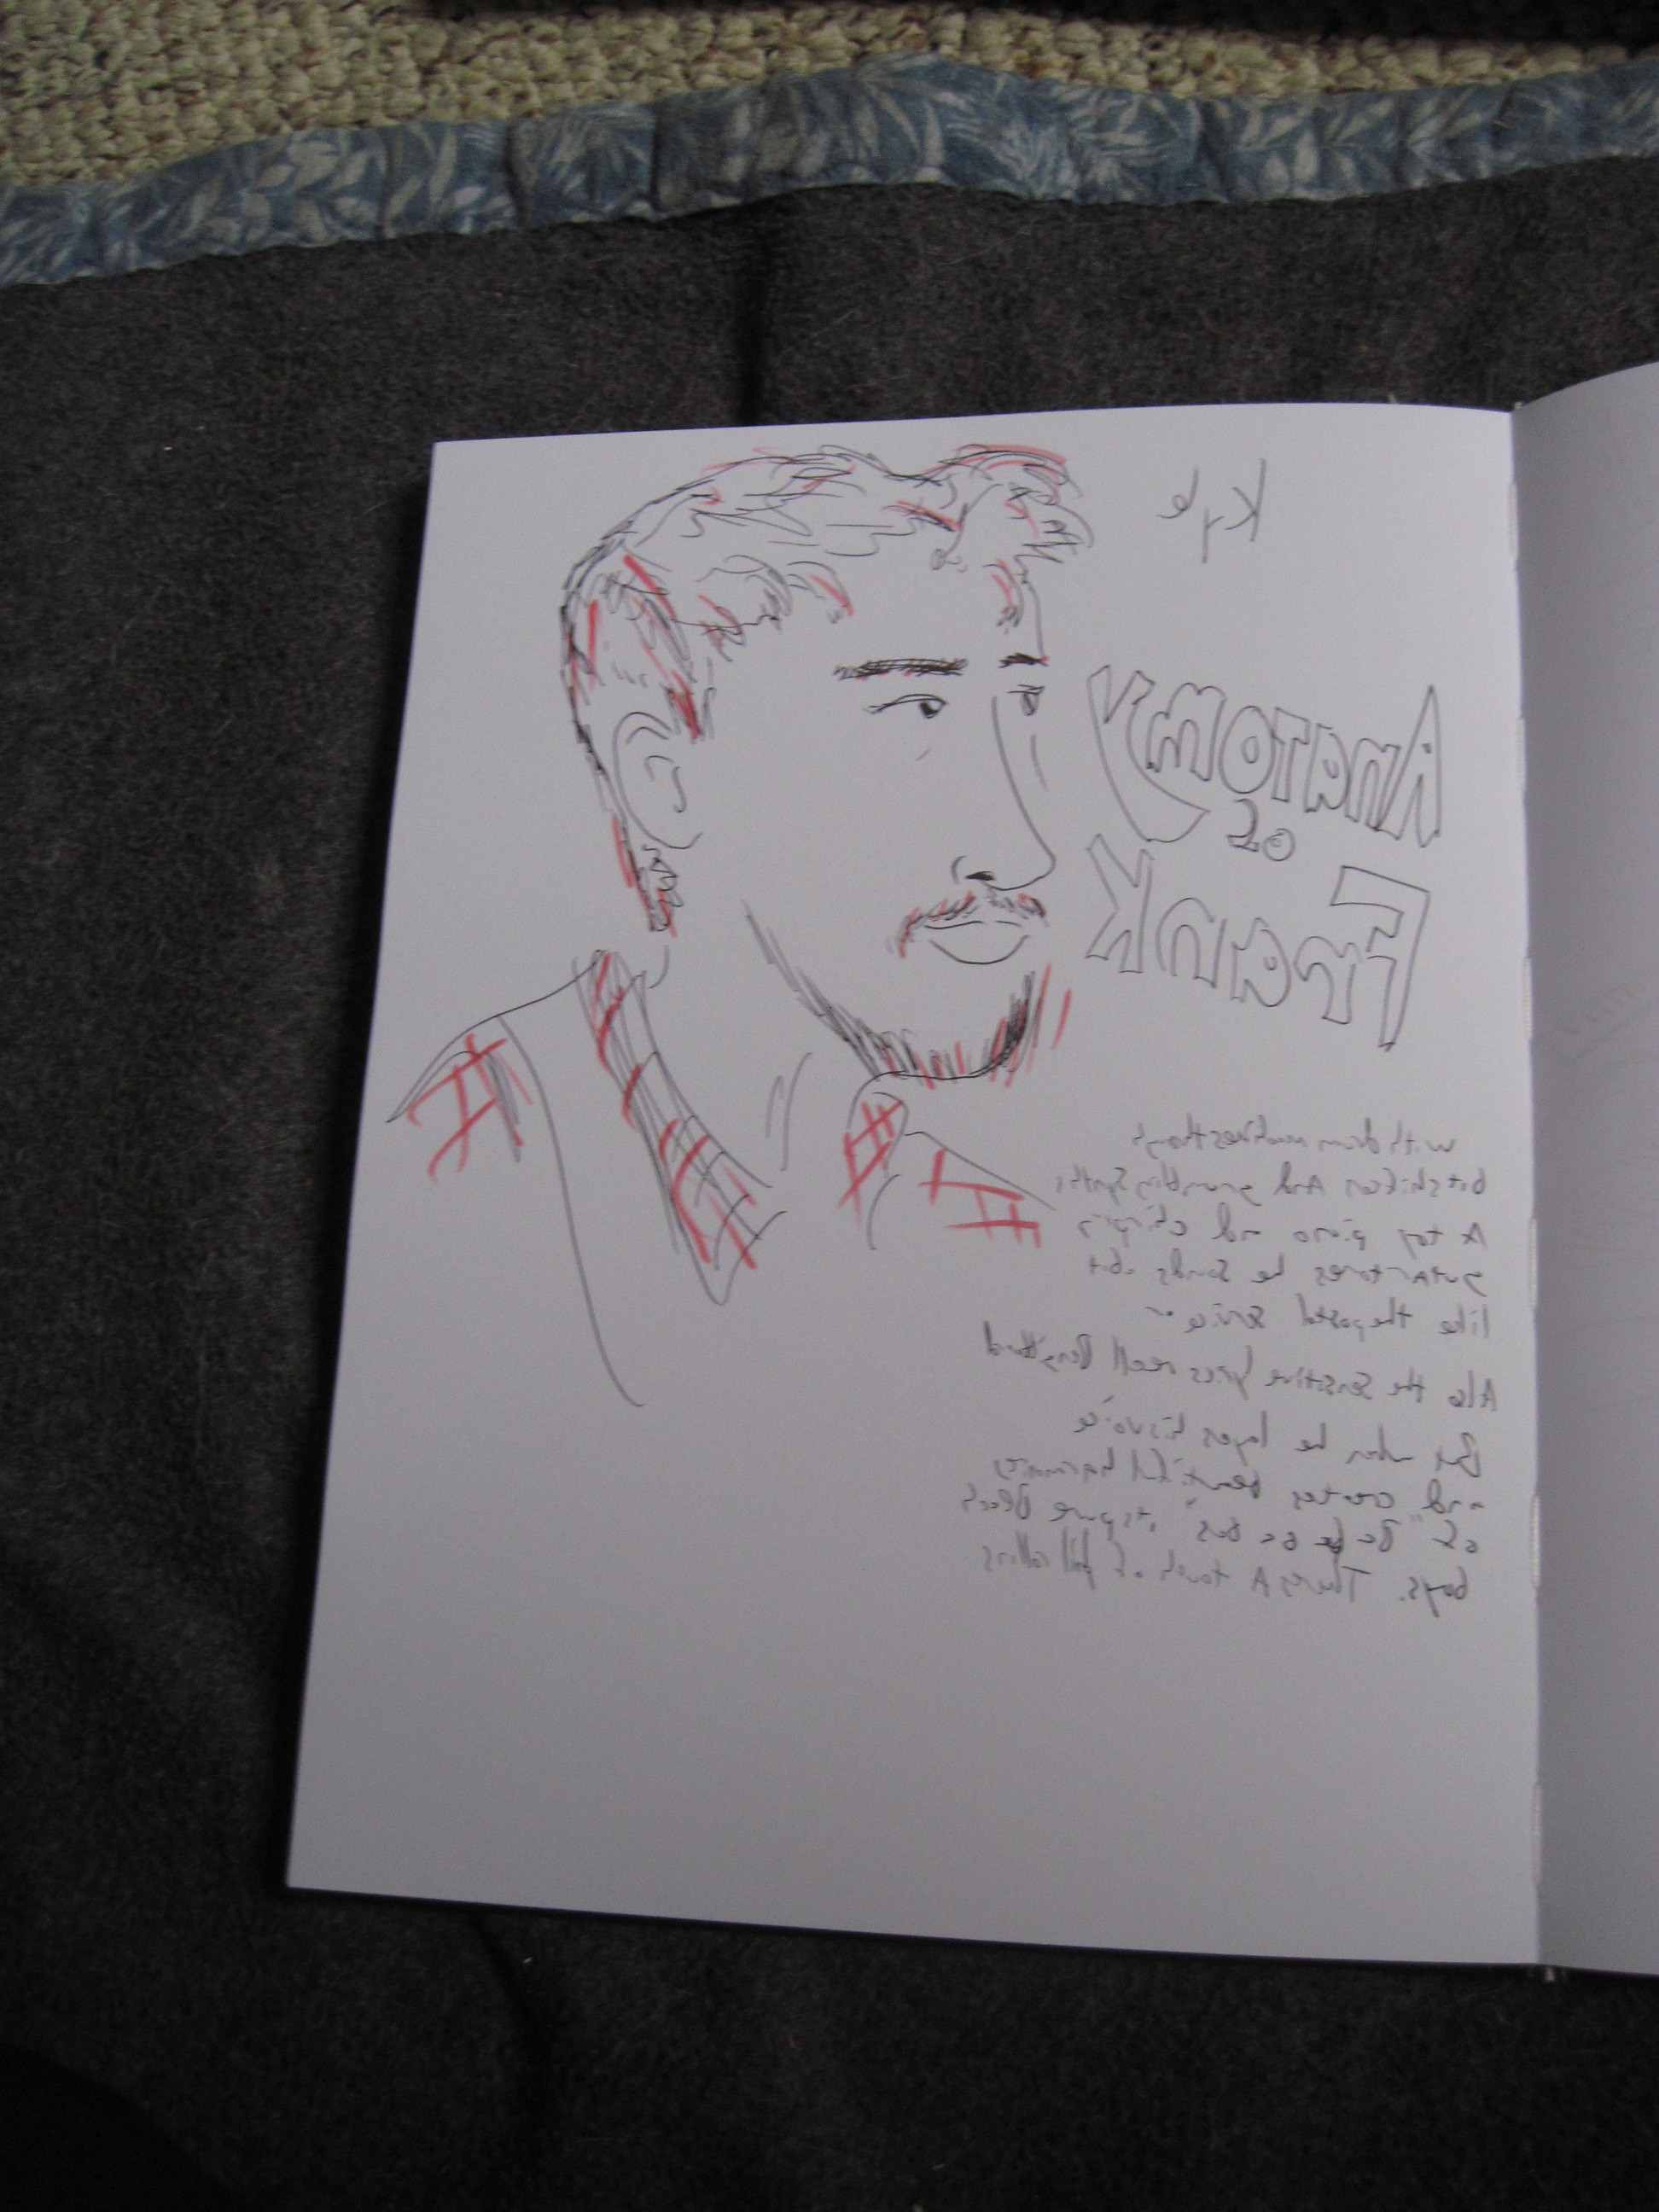 Kyle
ANATOMY
of
Frank
with drum machines though
bit shifters And grumbling Synths
A toy piano and chirping
guitar tones he sounds abit
like the postal service
Also the sensitive lyrics recall
But when he layers his voice
and creates beautiful harmonies
of
boys. Theres A touch of phil collins